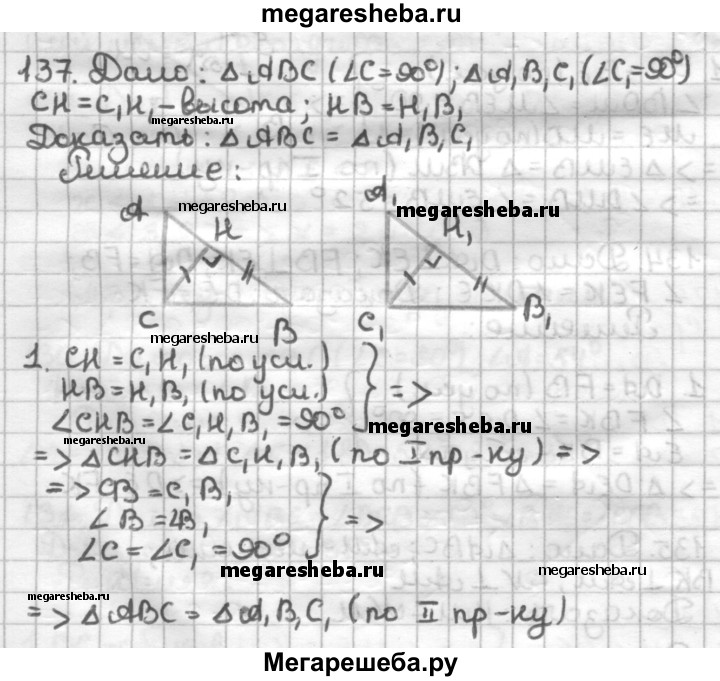 megaresheba.ru
137. Дано: ΔABC (∠C=90°); ΔA₁B₁C₁(∠C₁=90°)
CH=C₁H₁-высота; HB=H₁B₁
megaresheba.ru
Доказать: ΔABC = ΔA₁B₁C₁
Решение:
A megaresheba.ru H
A₁ megaresheba.ru H₁
C B C₁ B₁
megaresheba.ru
1. CH = C₁H₁ (по усл.)
HB = H₁B₁ (по усл.) } =>
∠CHB = ∠C₁H₁B₁ = 90° megaresheba.ru
megaresheba.ru
=> ΔCHB = ΔC₁H₁B₁ (по I пр-ку) =>
=> CB = C₁B₁
∠B = ∠B₁ } =>
∠C = ∠C₁ = 90°
megaresheba.ru megaresheba.ru
megaresheba.ru
=> ΔABC = ΔA₁B₁C₁ (по II пр-ку)
Мегарешеба.ру